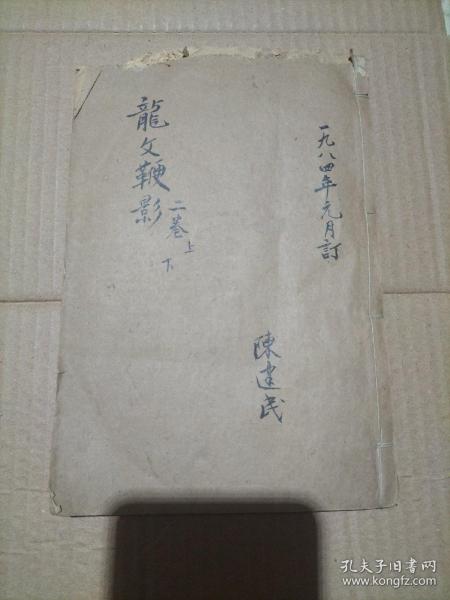 一九八四年元月訂
陳建民
龍文鞭影
二卷上下
孔夫子旧书网
www.kongfz.com